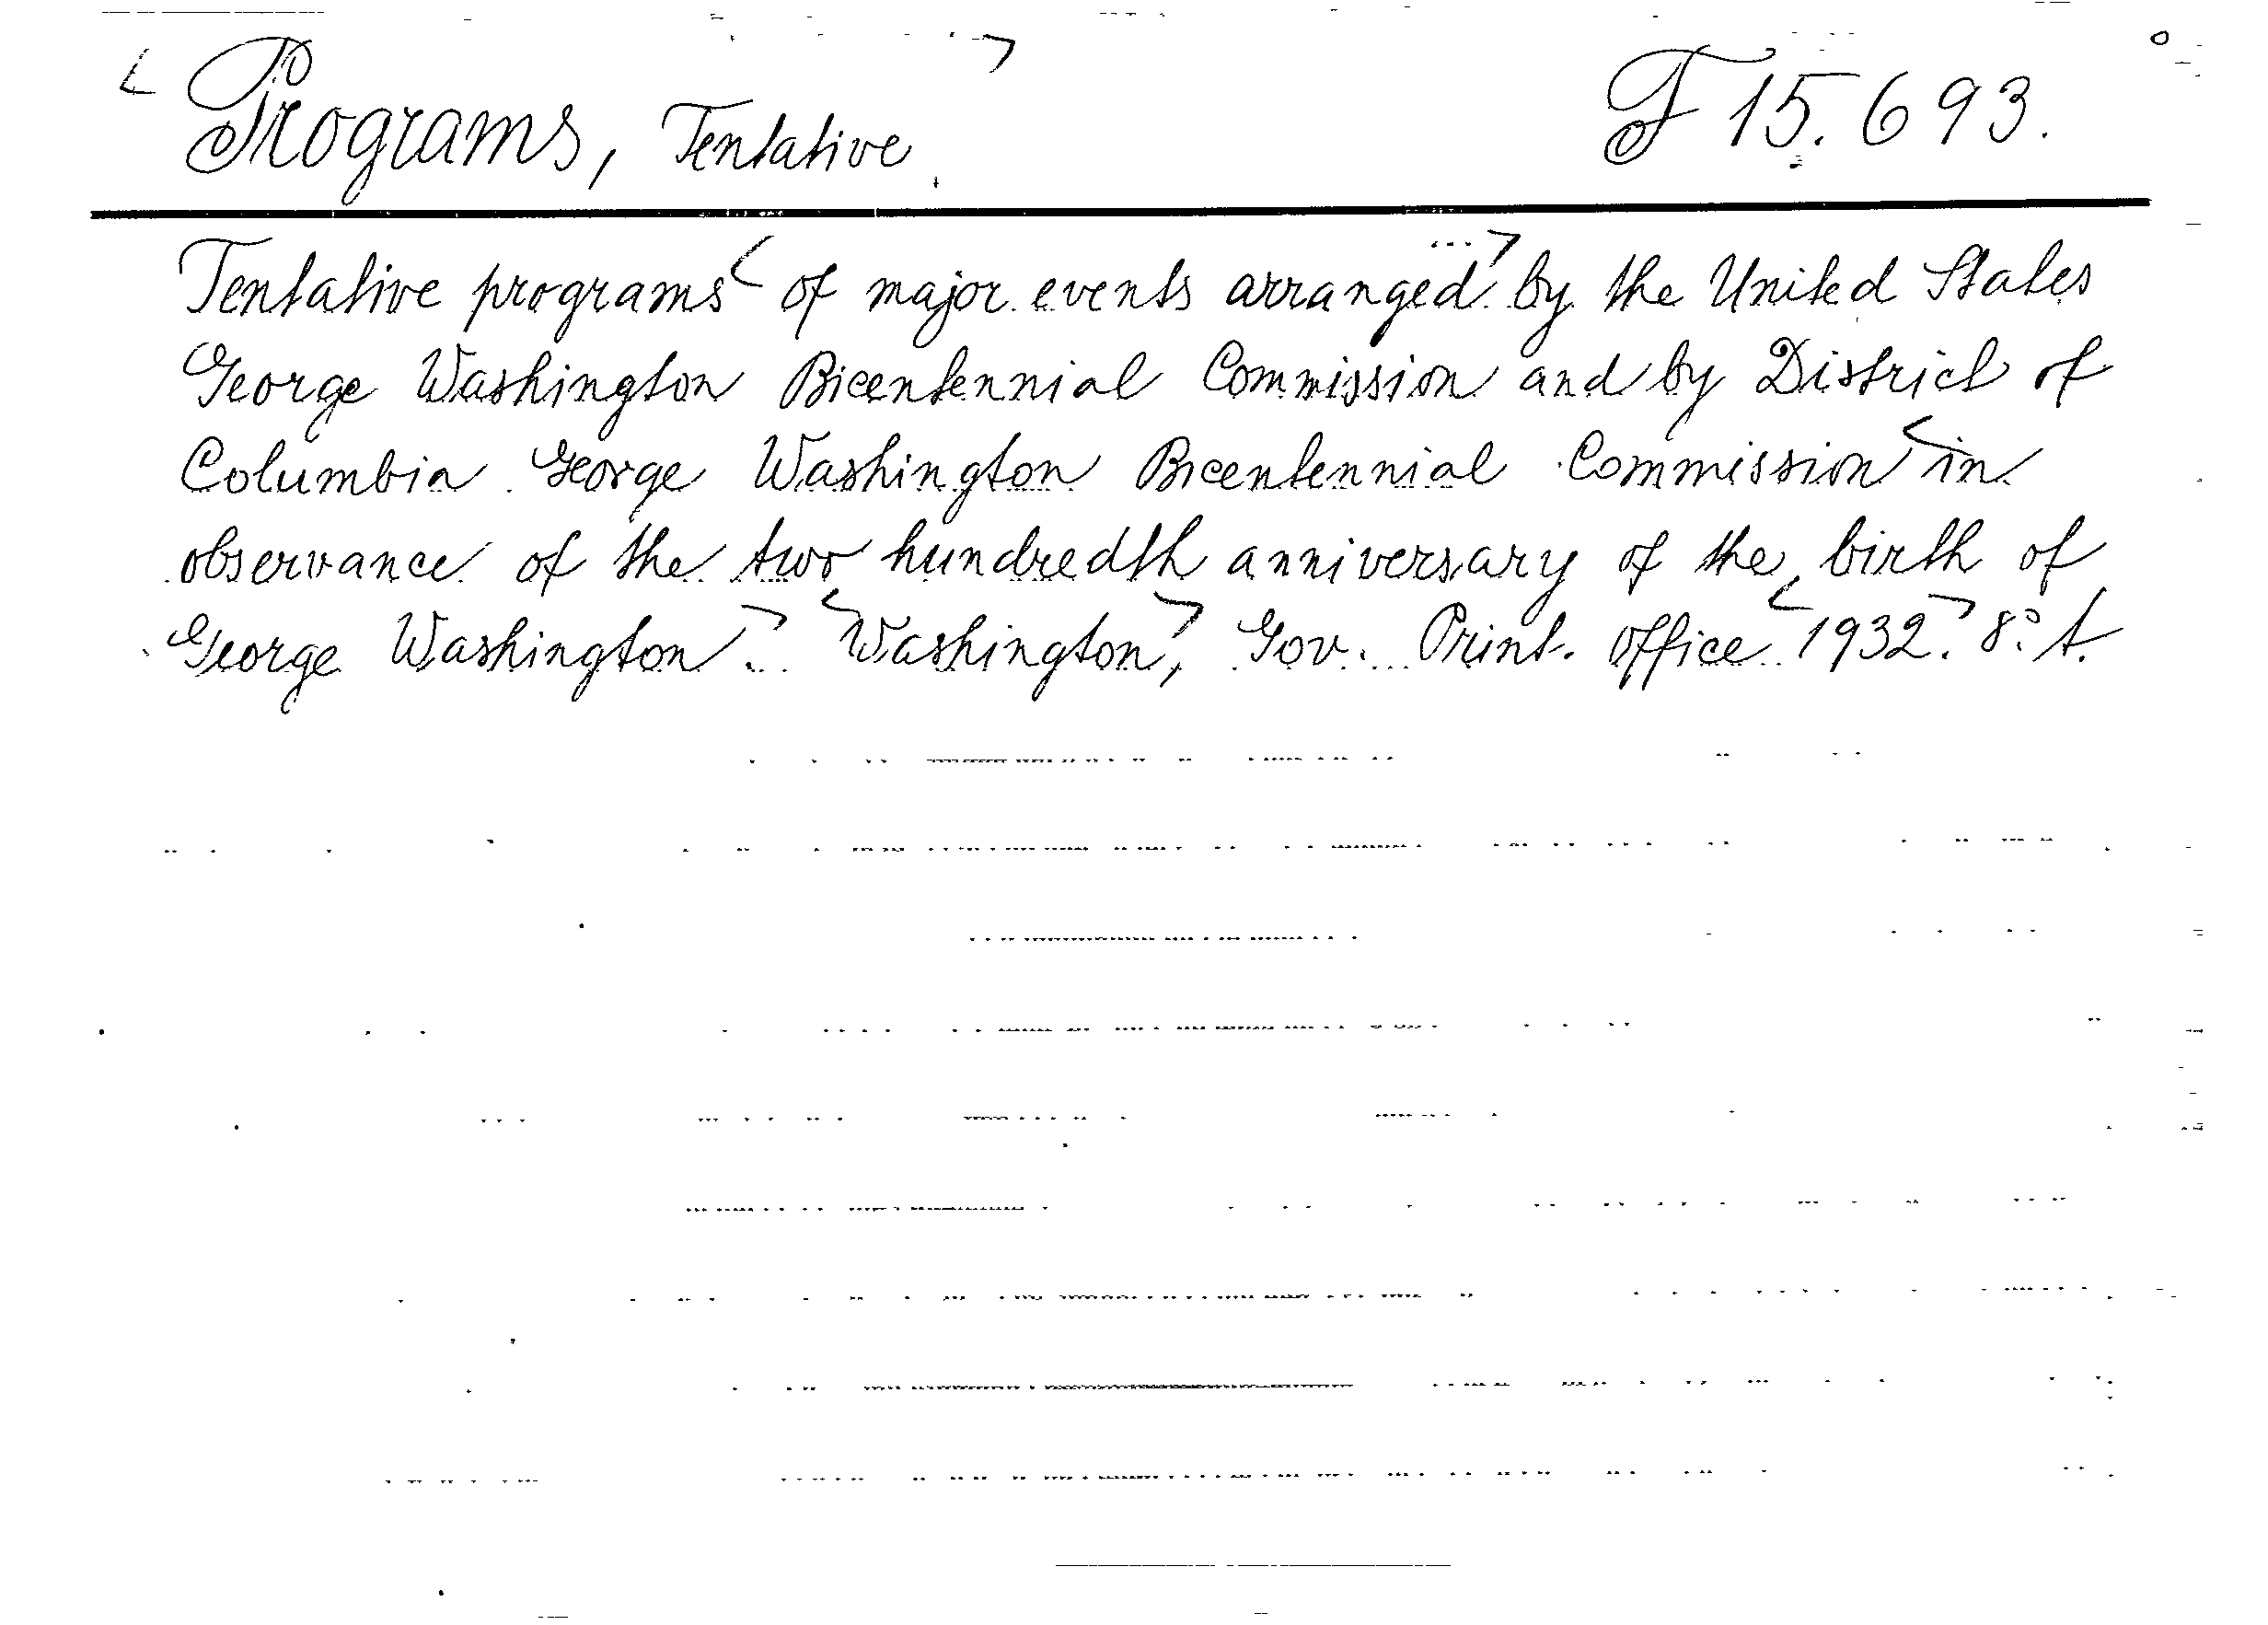 Programs, Tentative F 15.693.
Tentative programs of major events arranged by the United States
George Washington Bicentennial Commission and by District of
Columbia George Washington Bicentennial Commission in
observance of the two hundredth anniversary of the birth of
George Washington. Washington, Gov. Print. Office 1932. 8° t.